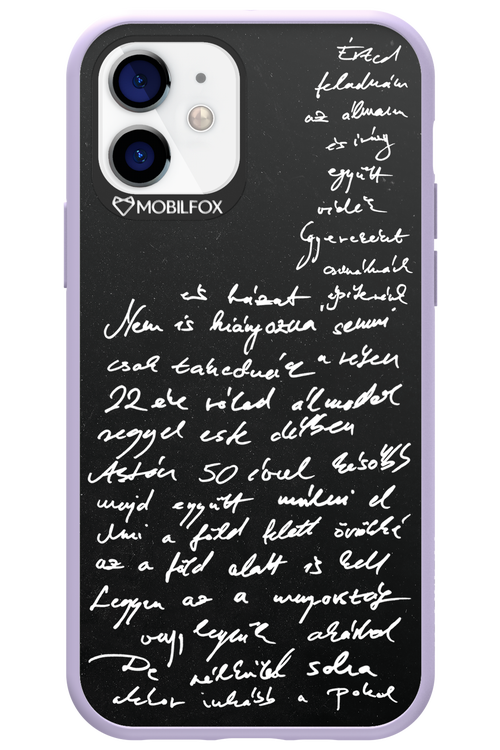 MOBILFOX
Érted
feladnám
az álmaim
és így
együtt
vidék
Gyerekeket
csinálnánk
és házat építenénk
Nem is hiányozna semmi
csak takednék a réten
22 éve rólad álmodok
reggel este délben
Aztán 50 évvel később
majd együtt múlni el
Ami a föld felett örökké
az a föld alatt is kell
Legyen az a mennyország
vagy legyünk akárhol
De nélküled soha
akkor inkább a pokol